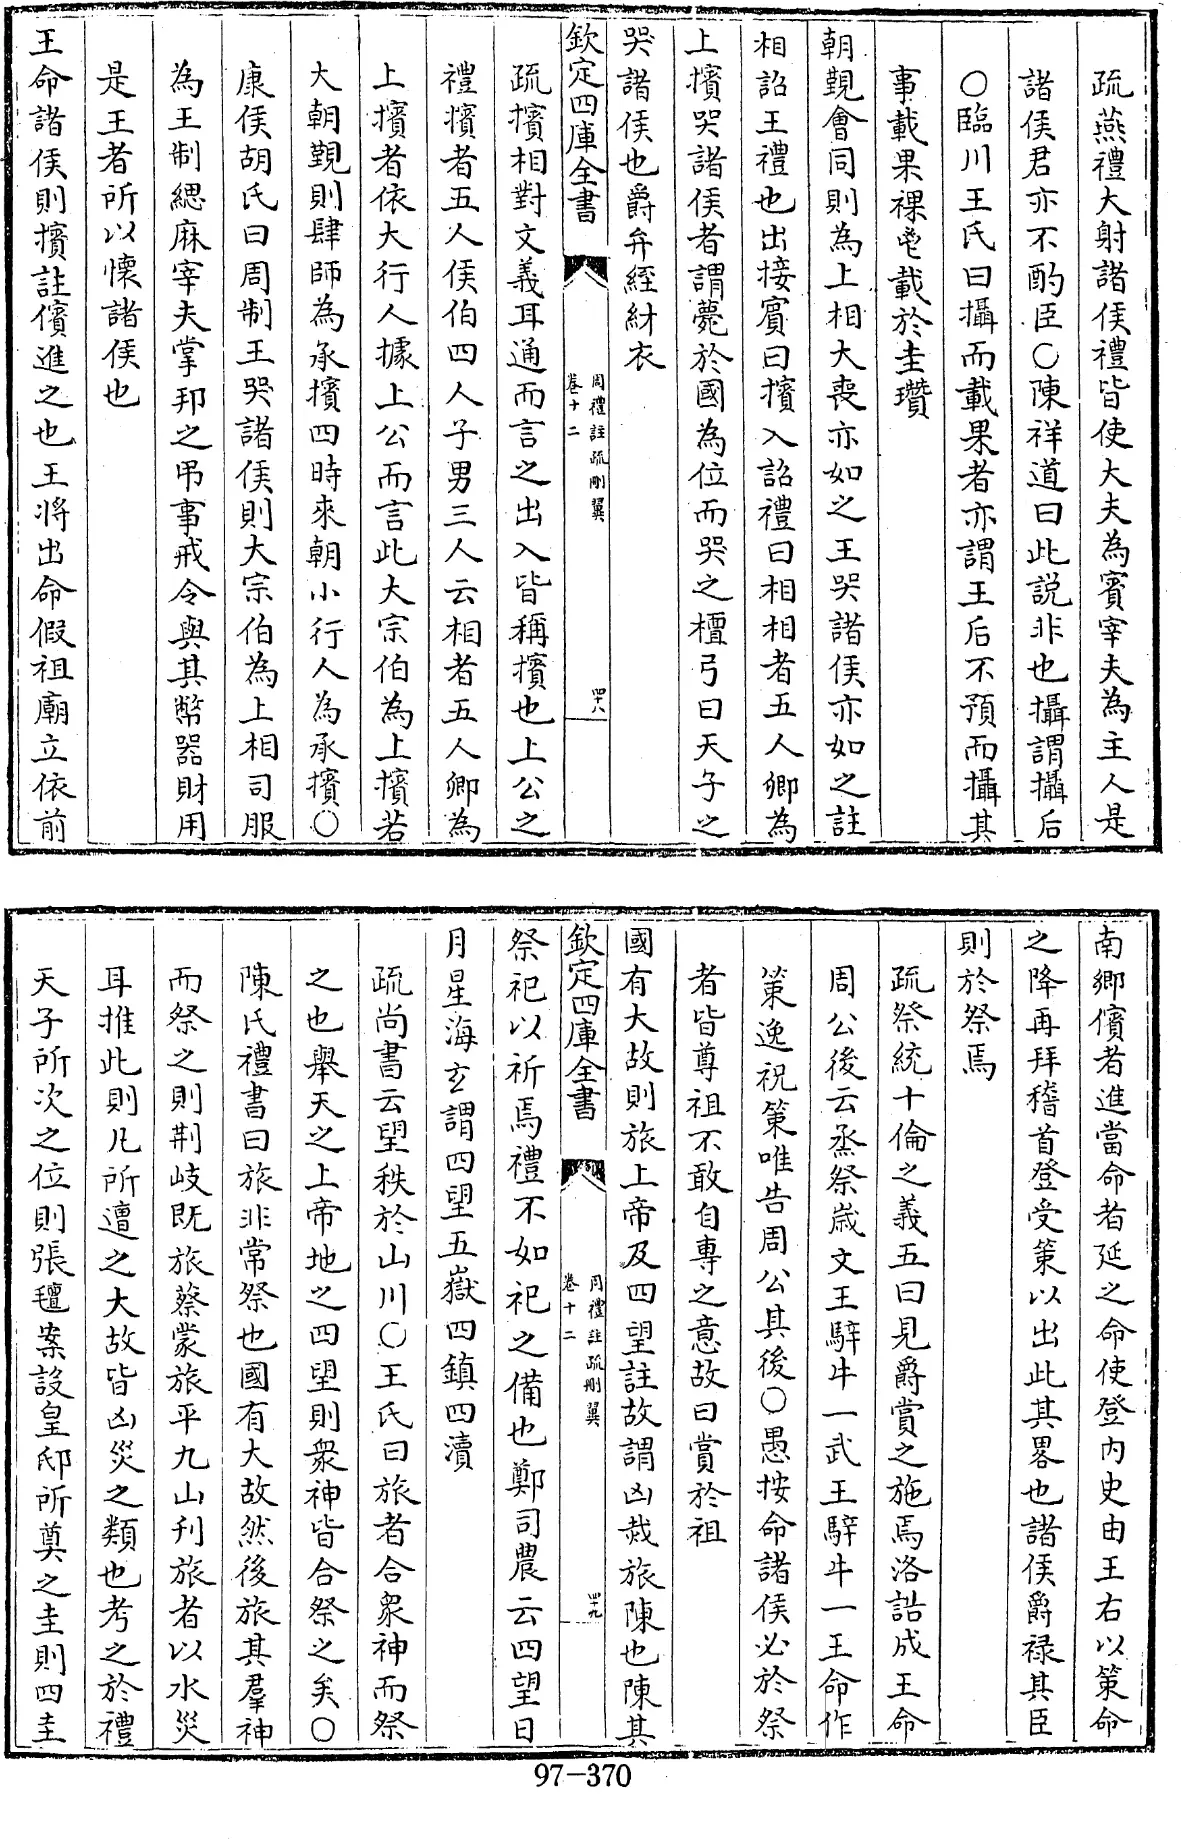 疏燕禮大射諸侯禮皆使大夫為賓宰夫為主人是
諸侯君亦不酌臣○陳祥道曰此説非也攝謂攝后
○臨川王氏曰攝而載果者亦謂王后不預而攝其
事載果祼鬯載於圭瓚
朝覲會同則為上相大喪亦如之王哭諸侯亦如之註
相詔王禮也出接賓曰擯入詔禮曰相相者五人卿為
上擯哭諸侯者謂薨於國為位而哭之檀弓曰天子之
哭諸侯也爵弁絰紂衣
欽定四庫全書
周禮註疏刪翼
卷十二
四十八
疏擯相對文義耳通而言之出入皆稱擯也上公之
禮擯者五人侯伯四人子男三人云相者五人卿為
上擯者依大行人據上公而言此大宗伯為上擯若
大朝覲則肆師為承擯四時來朝小行人為承擯○
康侯胡氏曰周制王哭諸侯則大宗伯為上相司服
為王制緦麻宰夫掌邦之弔事戒令與其幣器財用
是王者所以懷諸侯也
王命諸侯則擯註儐進之也王將出命假祖廟立依前
南鄉儐者進當命者延之命使登内史由王右以策命
之降再拜稽首登受策以出此其畧也諸侯爵禄其臣
則於祭焉
疏祭統十倫之義五曰見爵賞之施焉洛誥成王命
周公後云烝祭嵗文王騂牛一武王騂牛一王命作
策逸祝策唯告周公其後○愚按命諸侯必於祭
者皆尊祖不敢自專之意故曰賞於祖
國有大故則旅上帝及四望註故謂凶烖旅陳也陳其
欽定四庫全書
周禮註疏刪翼
卷十二
四十九
祭祀以祈焉禮不如祀之備也鄭司農云四望日
月星海玄謂四望五嶽四鎮四瀆
疏尚書云望秩於山川○王氏曰旅者合衆神而祭
之也舉天之上帝地之四望則衆神皆合祭之矣○
陳氏禮書曰旅非常祭也國有大故然後旅其羣神
而祭之則荆岐既旅蔡蒙旅平九山刋旅者以水災
耳推此則凡所遭之大故皆凶災之類也考之於禮
天子所次之位則張氊案設皇邸所奠之圭則四圭
97-370